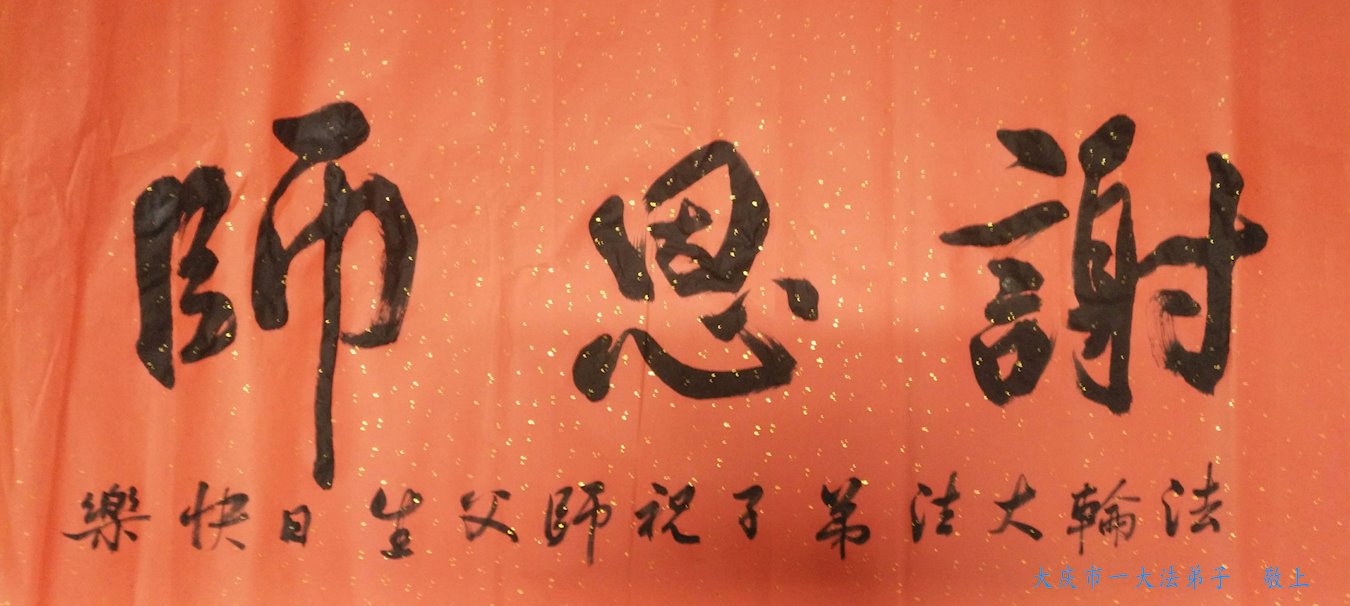 謝恩師
法輪大法弟子祝師父生日快樂
大庆市一大法弟子 敬上